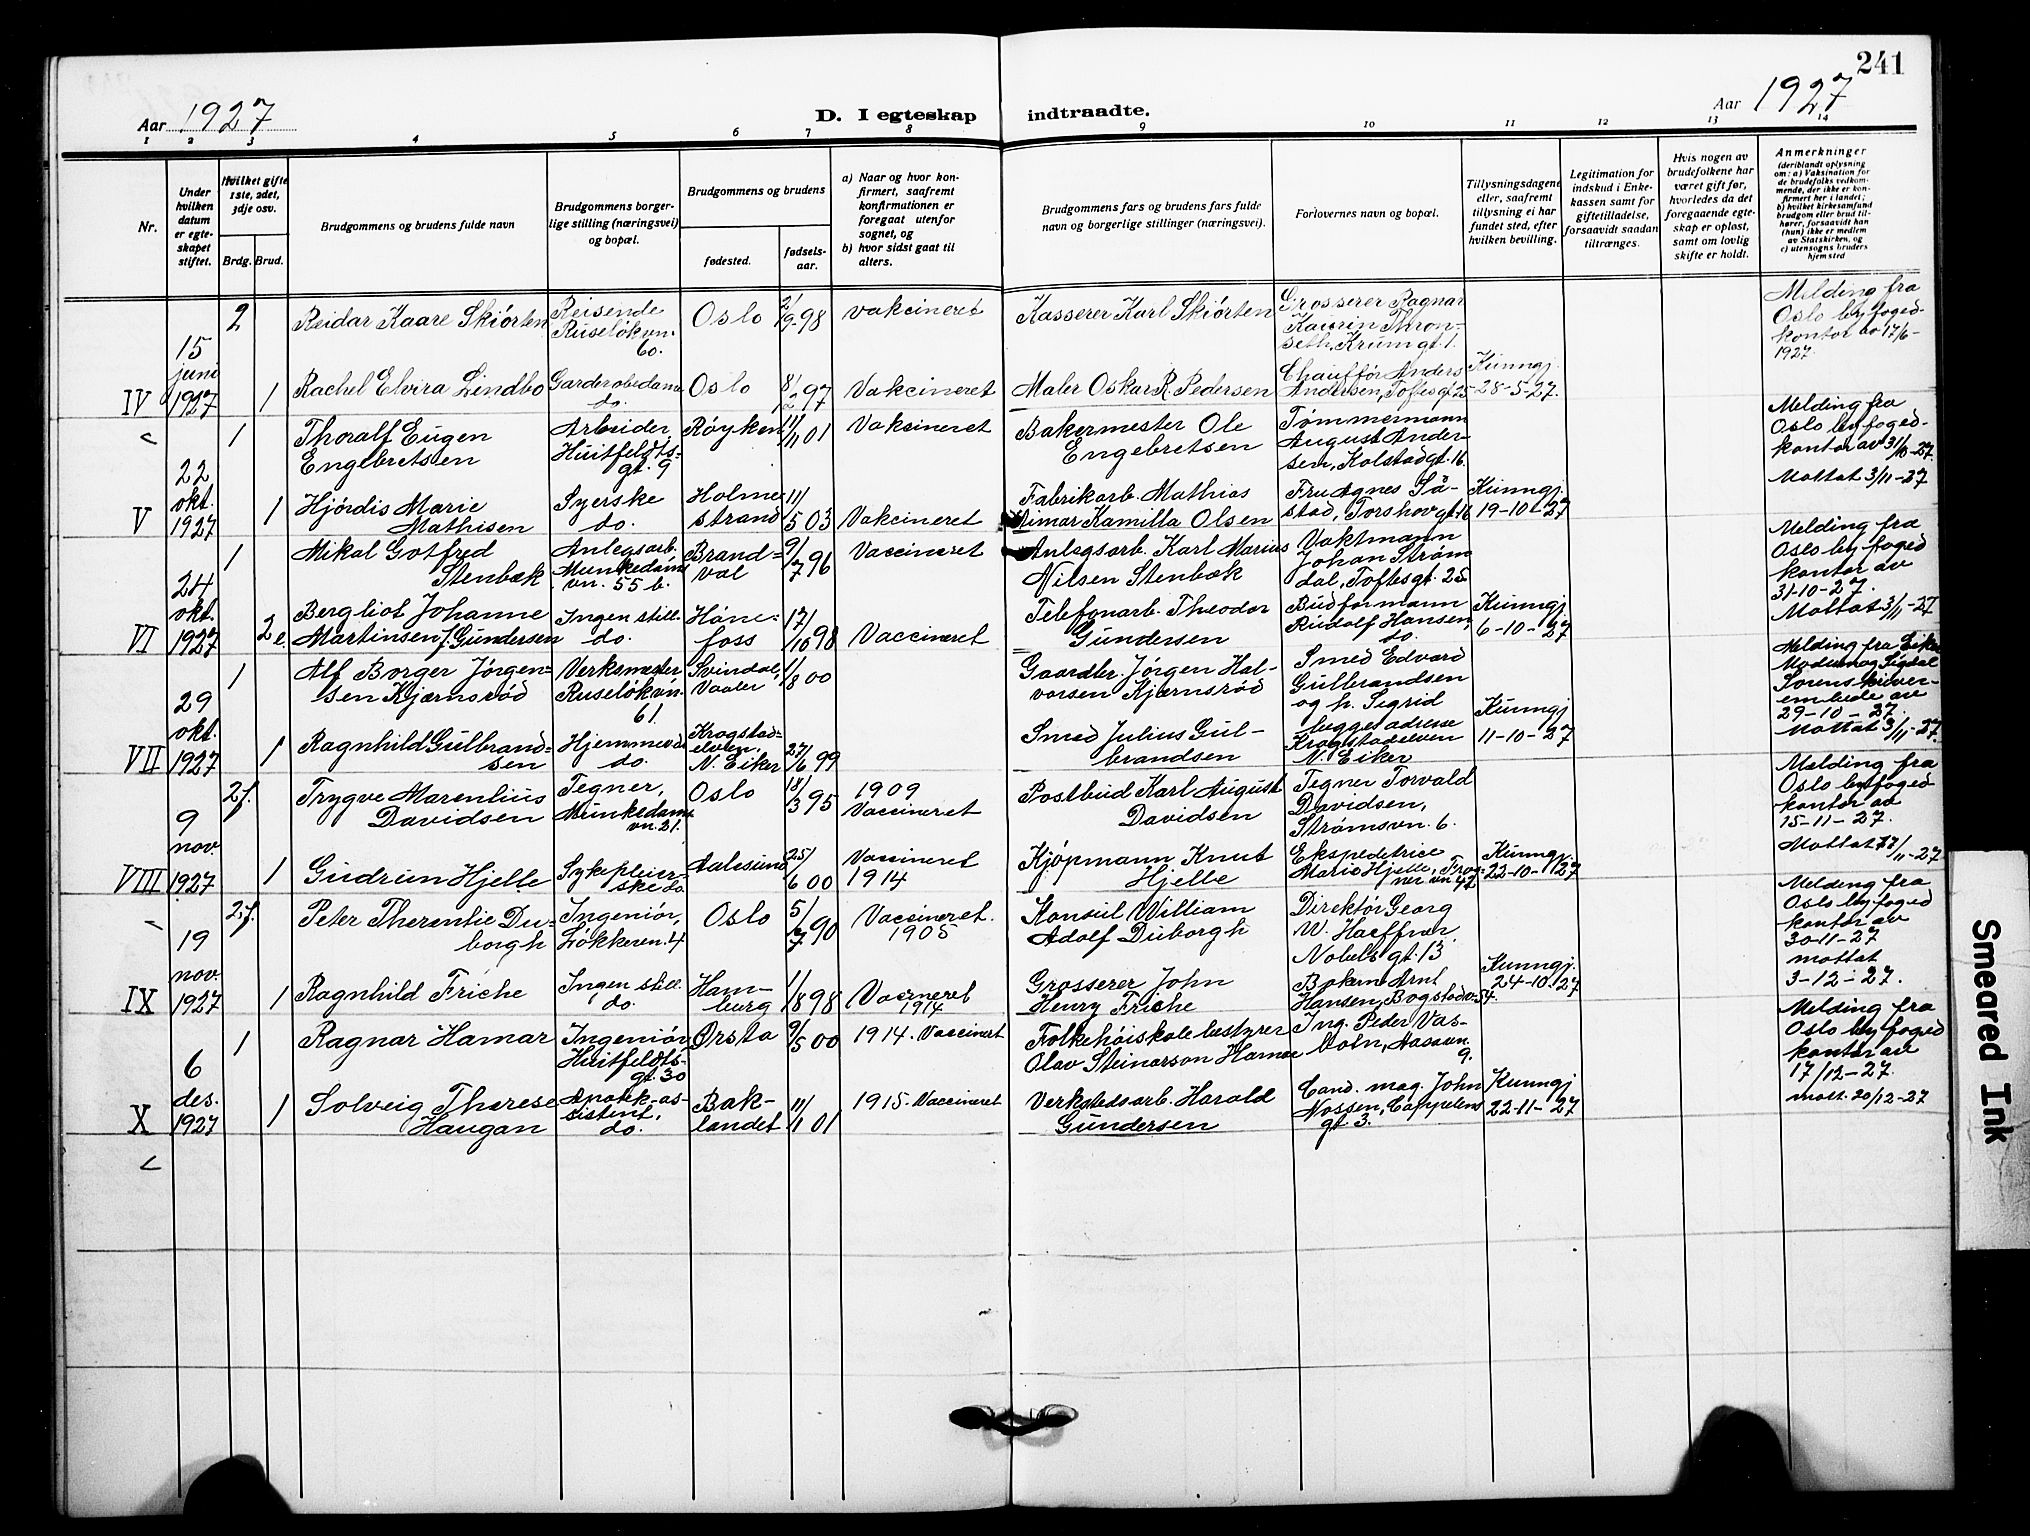 241
Aar 1927
D. I egteskap indtraadte.
Aar 1927
1 2 3 4 5 6 7 8 9 10 11 12 13 14
Nr.
Under hvilken datum er egteskapet stiftet.
Hvilket gifte 1ste, 2det, 3dje osv.
Brdg. Brud.
Brudgommens og brudens fulde navn
Brudgommens borgerlige stilling (næringsvei) og bopæl.
Brudgommens og brudens
fødested.
fødselsaar.
a) Naar og hvor konfirmert, saafremt konfirmationen er foregaat utenfor sognet, og
b) hvor sidst gaat til alters.
Brudgommens fars og brudens fars fulde navn og borgerlige stillinger (næringsvei).
Forlovernes navn og bopæl.
Tillysningsdagene eller, saafremt tillysning ei har fundet sted, efter hvilken bevilling.
Legitimation for indskud i Enkekassen samt for giftetilladelse, forsaavidt saadan tiltrænges.
Hvis nogen av brudefolkene har været gift før, hvorledes da det foregaaende egteskap er opløst, samt om lovlig skifte er holdt.
Anmerkninger
(deriblandt oplysning om: a) Vaksination for de brudefolks vedkommende, der ikke er konfirmert her i landet;
b) hvilket kirkesamfund brudgom eller brud tilhører, forsaavidt han (hun) ikke er medlem av Statskirken, og
c) utensogns bruders hjemsted
IV
15 juni 1927
2
Reidar Kaare Skiörten
Reisende Ruseløkvn. 60.
Oslo
2/9-98
vakcineret
Kasserer Karl Skiörten
Grosserer Ragnar Kaurin Thronseth, Krumgt. 1.
Melding fra Oslo byfogedkontor av 17/6-1927.
1
Rachel Elvira Lindbo
Garderobedame do.
Oslo
8/2 97
Vakcineret
Maler Oskar R. Pedersen
Chauffør Anders Andersen, Toftesgt. 25
Kunngj. 28-5-27.
V
22 okt. 1927
1
Thoralf Eugen Engebretsen
Arbeider Huitfeldtsgt. 9
Røyken
11/11 01
Vakcineret
Bakermester Ole Engebretsen
Tømmermann August Andersen, Kolstadgt. 16.
Melding fra Oslo byfogedkontor av 31/10-27.
Mottat 3/11-27
1
Hjördis Marie Mathisen
Syerske do.
Holmestrand
11/5 03
Vakcineret
Fabrikarb. Mathias Kamilla Olsen
Fru Agnes Såstad, Torshovgt. 16
Kunngj. 19-10-27
VI
24 okt. 1927
1
Mikal Gotfred Stenbæk
Anlegsarb. Munkedamsvn. 55 b.
Brandval
9/7 96
Vaccineret
Anlegsarb. Karl Marius Nilsen Stenbæk
Vaktmann Johan Strømdal, Toftesgt. 25
Melding fra Oslo byfoged kontor av 31-10-27.
Mottat 3/11-27
2 e.
Bergliot Johanne Martinsen f. Gundersen
Ingen still. do.
Hönefoss
17/10 98
Vaccineret
Telefonarb. Theodor Gundersen
Budformann Rudolf Hansen, do.
Kunngj. 6-10-27
VII
29 okt. 1927
1
Alf Borger Jörgensen Kjærnsröd
Verksmester Ruseløkvn. 61.
Svindal, Vaaler
1/8 00
Gaardbr. Jörgen Halvorsen Kjærnsröd
Smed Edvard Gulbrandsen og h. Sigrid begge adresse Krogstadelven N. Eiker
Melding fra Eiker Modum og Sigdal Sorenskriverembede av 29-10-27.
Mottat 3/11-27.
1
Ragnhild Gulbrandsen
Hjemmeværende do.
Krogstadelven, N. Eiker
27/6 99
Smed Julius Gulbrandsen
Kunngj. 11-10-27
VIII
9 nov. 1927
2 f.
Trygve Marenlius Davidsen
Tegner, Munkedamsvn. 21.
Oslo
18/3 95
1909 Vaccineret
Postbud Karl August Davidsen
Tegner Torvald Davidsen, Strømsvn. 6.
Melding fra Oslo byfoged kontor av 15-11-27.
Mottat 17/11-27
1
Gudrun Hjelle
Sykepleierske do
Aalesund
25/6 00
Vaccineret 1914
Kjöpmann Knut Hjelle
Ekspeditrice Marie Hjelle, Frognervn 42
Kunngj. 22-10-27
IX
19 nov. 1927
2 f.
Peter Therentie Duborgh
Ingeniör, Løkkevn. 4
Oslo
5/7 90
Vaccineret. 1905
Konsul William Adolf Duborgh
Direktör Georg W. Haffner, Nobelsgt. 13
Melding fra Oslo byfoged kontor av 30-11-27
mottat 3-12-27.
1
Ragnhild Friche
Ingen still. do.
Hamburg
1/8 98
Vaccineret 1914
Grosserer John Henry Friche
Bokerm. Arnt Hansen, Bogstadv. 54.
Kunngj. 24-10-27
X
6 des. 1927
1
Ragnar Hamar
Ingeniör Huitfeldtsgt. 30
Ørsta
9/5 00
1914. Vaccineret
Folkehöiskolebestyrer Olav Steinarson Hamar
Ing. Peder Vasbotn, Aasavn. 9.
Melding fra Oslo byfoged kontor av 17/12-27.
mott. 20/12-27
1
Solveig Therese Haugan
Apotek-assistent, do.
Baklandet
11/1 01
1915. Vaccineret
Verkstedsarb. Harald Gundersen
Cand. mag. John Nossen, Cappelensgt. 3.
Kunngj. 22-11-27
Smeared Ink